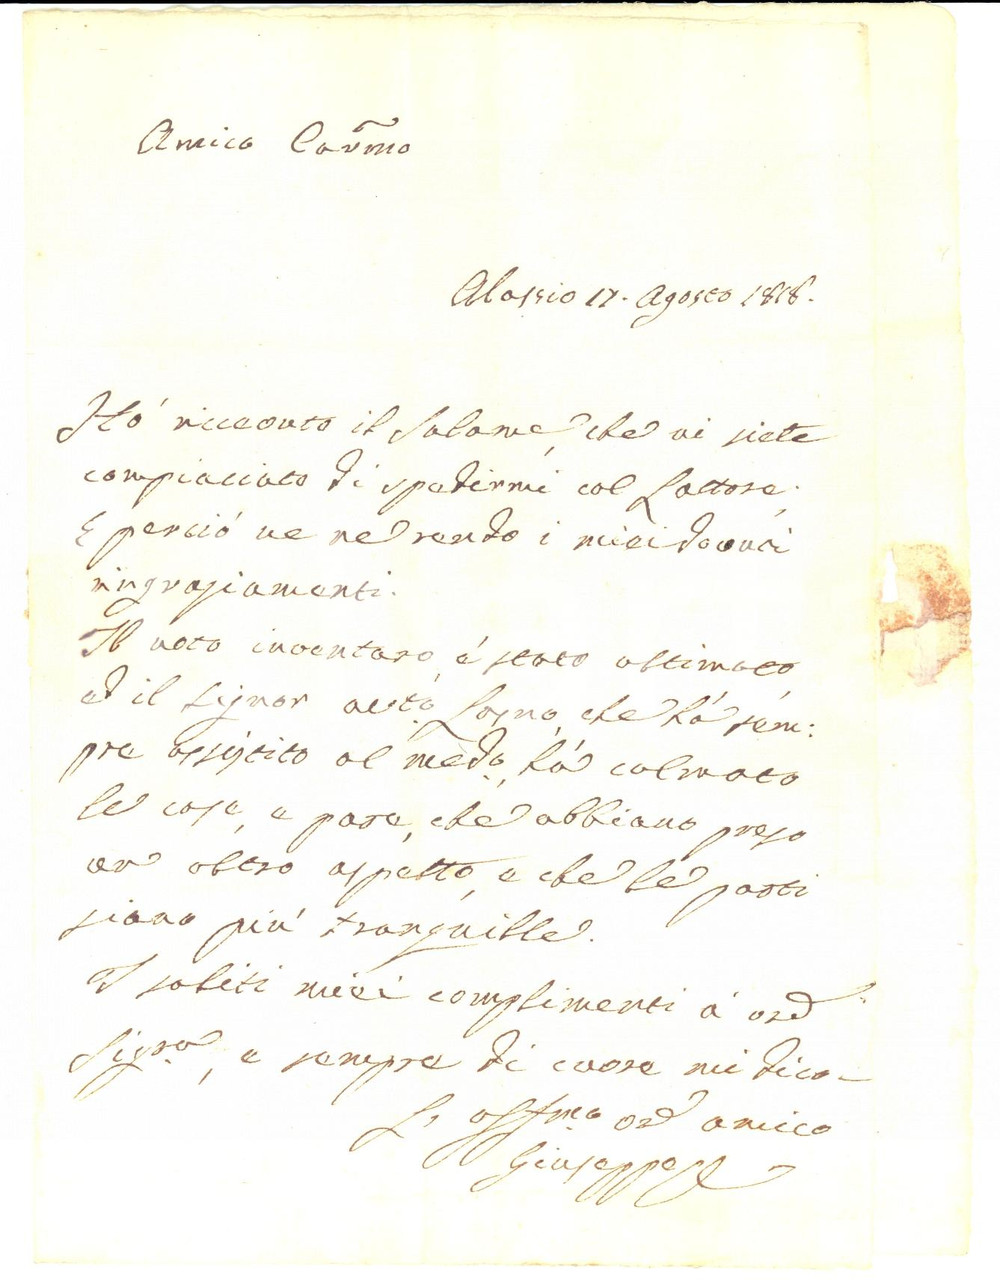 Amico Car.mo
Alassio 17. Agosto 1818.
Hó riceouto il Salame, che vi siete
compiacciato di spedirmi col Lattore,
E perció ve ne rendo i miei doouti
ringraziamenti.
Il noto inventaro, é stato ultimato
ed il Signor Logno, che há sem:
pre assistito al med.o, há calmato
le cose, e pare, che abbiano preso
un altro aspetto, e che le parti
siano piú tranquille.
I soliti miei complimenti á
Sig.ra, e sempre di cuore mi dico
L' aff.mo amico
Giuseppe